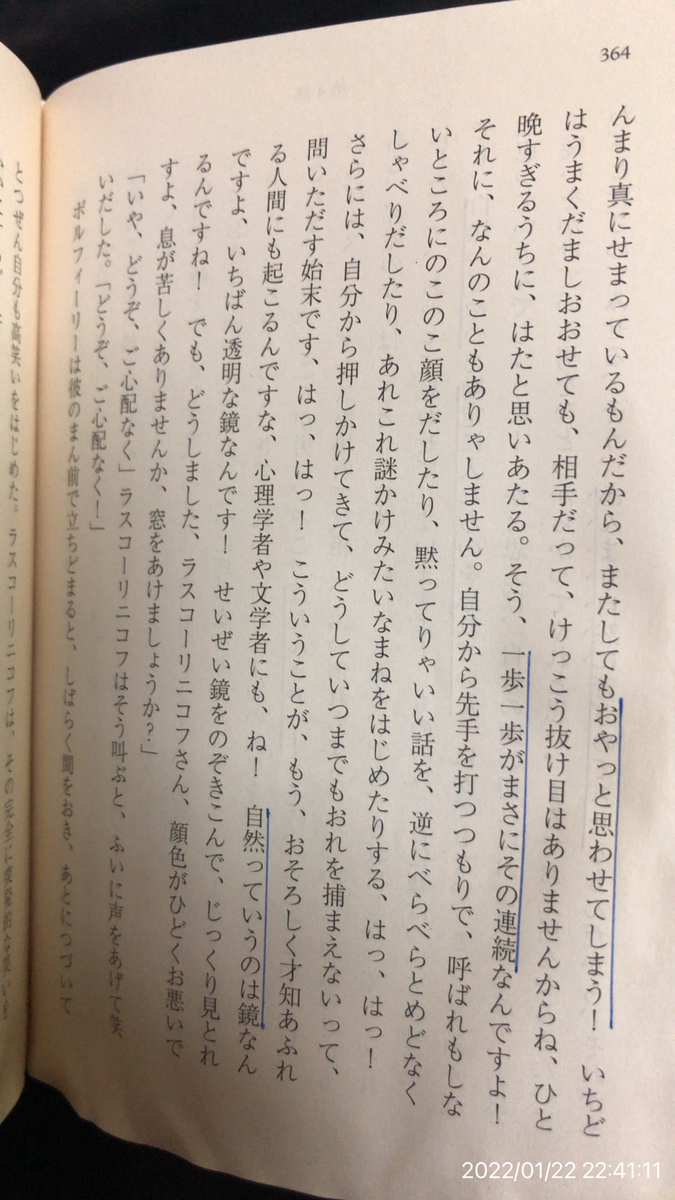 364
んまり真にせまっているもんだから、またしてもおやっと思わせてしまう！　いちど
はうまくだましおおせても、相手だって、けっこう抜け目はありませんからね、ひと
晩すぎるうちに、はたと思いあたる。そう、一歩一歩がまさにその連続なんですよ！
それに、なんのこともありゃしません。自分から先手を打つつもりで、呼ばれもしな
いところにのこのこ顔をだしたり、黙ってりゃいい話を、逆にべらべらとめどなく
しゃべりだしたり、あれこれ謎かけみたいなまねをはじめたりする、はっ、はっ！
さらには、自分から押しかけてきて、どうしていつまでもおれを捕まえないって、
問いただす始末です、はっ、はっ！　こういうことが、もう、おそろしく才知あふれ
る人間にも起こるんですな、心理学者や文学者にも、ね！　自然っていうのは鏡なん
ですよ、いちばん透明な鏡なんです！　せいぜい鏡をのぞきこんで、じっくり見とれ
るんですね！　でも、どうしました、ラスコーリニコフさん、顔色がひどくお悪いで
すよ、息が苦しくありませんか、窓をあけましょうか？」
「いや、どうぞ、ご心配なく」ラスコーリニコフはそう叫ぶと、ふいに声をあげて笑
いだした。「どうぞ、ご心配なく！」
ポルフィーリーは彼のまん前で立ちどまると、しばらく間をおき、あとにつづいて
とつぜん自分も高笑いをはじめた。ラスコーリニコフは、その完全に発発的な笑いを
2022/01/22 22:41:11